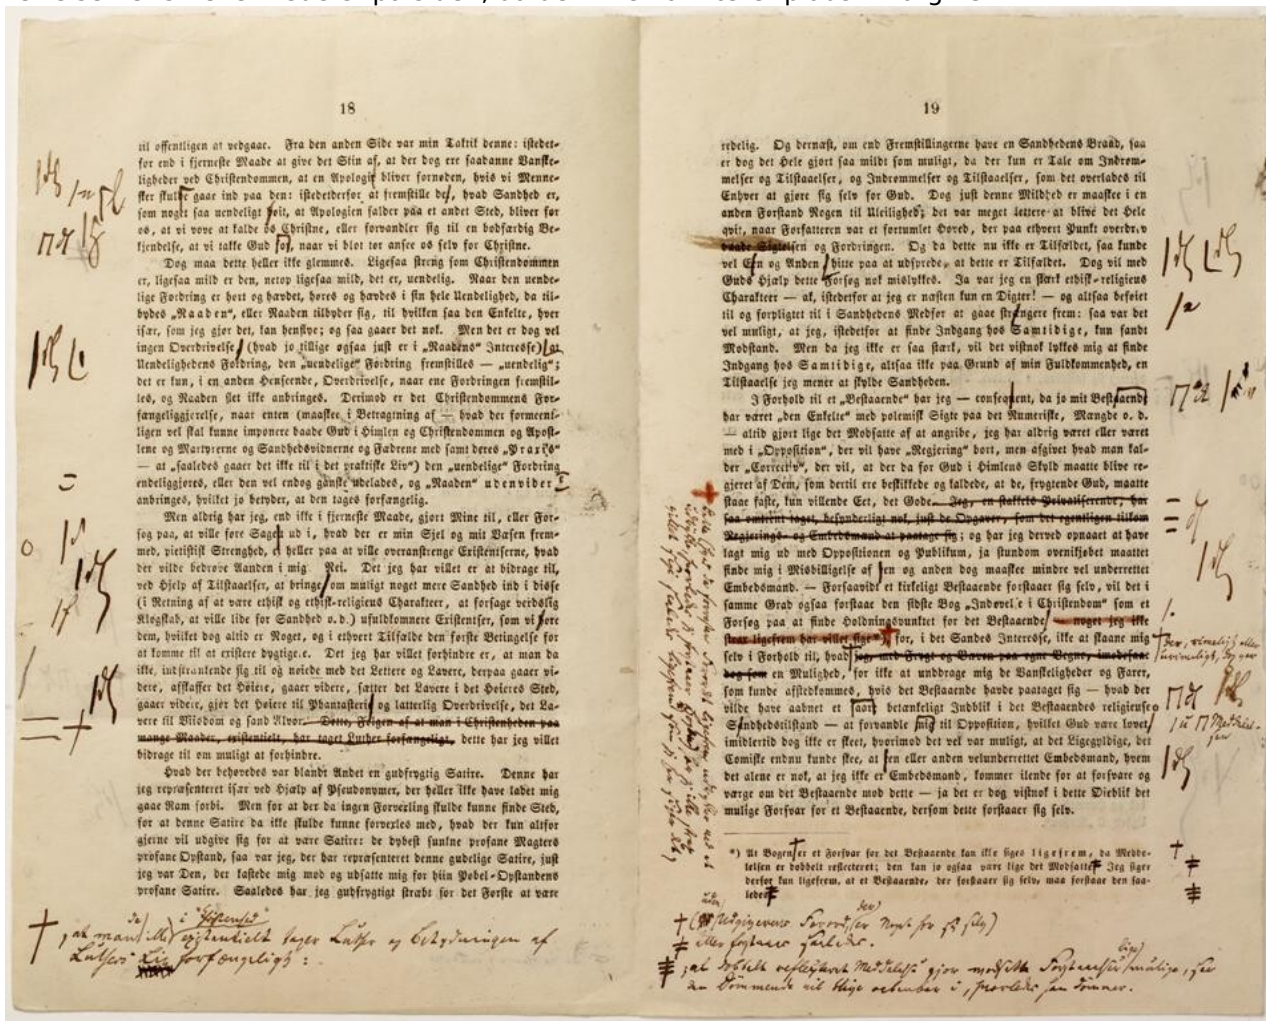 18
til offentligen at vedgaae. Fra den anden Side var min Taktik denne: istedet-
for end i fjerneste Maade at give det Skin af, at der dog ere saadanne Vanske-
ligheder ved Christendommen, at en Apologie bliver fornøden, hvis vi Menne-
sker skulle gaae ind paa den: istedetderfor at fremstille det, hvad Sandhed er,
som noget saa uendeligt høit, at Apologien falder paa et andet Sted, bliver for
os, at vi vove at kalde os Christne, eller forvandler sig til en bodfærdig Be-
kjendelse, at vi takke Gud for, naar vi blot tør ansee os selv for Christne.
Dog maa dette heller ikke glemmes. Ligesaa streng som Christendommen
er, ligesaa mild er den, netop ligesaa mild, det er, uendelig. Naar den uende-
lige Fordring er hørt og hævdet, høres og hævdes i sin hele Uendelighed, da til-
bydes „Naaden“, eller Naaden tilbyder sig, til hvilken saa den Enkelte, hver
især, som jeg gjør det, kan henflye; og saa gaaer det nok. Men det er dog vel
ingen Overdrivelse, (hvad jo tillige ogsaa just er i „Naadens“ Interesse) at
Uendelighedens Fordring, den „uendelige“ Fordring fremstilles — „uendelig“;
det er kun, i en anden Henseende, Overdrivelse, naar ene Fordringen fremstil-
les, og Naaden slet ikke anbringes. Derimod er det Christendommens For-
fængeliggjørelse, naar enten (maaskee i Betragtning af — hvad der formeent-
ligen vel skal kunne imponere baade Gud i Himlen og Christendommen og Apost-
lene og Martyrerne og Sandhedsvidnerne og Fædrene med samt deres „Praxis“
— at „saaledes gaaer det ikke til i det praktiske Liv“) den „uendelige“ Fordring
endeliggjøres, eller den vel endog ganske udelades, og „Naaden“ udenvider
anbringes, hvilket jo betyder, at den tages forfængelig.
Men aldrig har jeg, end ikke i fjerneste Maade, gjort Mine til, eller For-
søg paa, at ville føre Sagen ud i, hvad der er min Sjel og mit Væsen frem-
med, pietistisk Strenghed, ei heller paa at ville overanstrenge Existentserne, hvad
der vilde bedrøve Aanden i mig. Nei. Det jeg har villet er at bidrage til,
ved Hjelp af Tilstaaelser, at bringe om muligt noget mere Sandhed ind i disse
(i Retning af at være ethisk og ethisk-religieus Charakteer, at forsage verdslig
Klogskab, at ville lide for Sandhed o.d.) ufuldkomnere Existentser, som vi føre
dem, hvilket dog altid er Noget, og i ethvert Tilfælde den første Betingelse for
at komme til at existere dygtigere. Det jeg har villet forhindre er, at man da
ikke, indskrænkende sig til og nøiede med det Lettere og Lavere, derpaa gaaer vi-
dere, afskaffer det Høiere, gaaer videre, sætter det Lavere i det Høieres Sted,
gaaer videre, gjør det Høiere til Phantasterie og latterlig Overdrivelse, det La-
vere til Viisdom og sand Alvor. Dette, Følgen af at man i Christenheden paa
mange Maader, existentielt, har taget Luther forfængeligt, dette har jeg villet
bidrage til om muligt at forhindre.
Hvad der behøvedes var blandt Andet en gudfrygtig Satire. Denne har
jeg repræsenteret især ved Hjælp af Pseudonymer, der heller ikke have ladet mig
gaae Ram forbi. Men for at der da ingen Forvexling skulde kunne finde Sted,
for at denne Satire da ikke skulde kunne forvexles med, hvad der kun altfor
gjerne vil udgive sig for at være Satire: de dybest sunkne profane Magters
profane Opstand, saa var jeg, der har repræsenteret denne gudelige Satire, just
jeg var Den, der kastede mig mod og udsatte mig for hiin Pøbel-Opstandens
profane Satire. Saaledes har jeg gudfrygtigt stræbt for det Første at være
, at man existentielt tager Luther og Betydningen af
Luthers Liv forfængeligt:
19
redelig. Og dernæst, om end Fremstillingerne have en Sandhedens Brand, saa
er dog det Hele gjort saa mildt som muligt, da der kun er Tale om Indrøm-
melser og Tilstaaelser, og Indrømmelser og Tilstaaelser, som det overlades til
Enhver at gjøre sig selv for Gud. Dog just denne Mildhed er maaskee i en
anden Forstand Nogen til Uleilighed; det var meget lettere at blive det Hele
qvit, naar Forfatteren var et forrumlet Hoved, der paa ethvert Punkt overdrev
baade Sigtelsen og Fordringen. Og da dette nu ikke er Tilfældet, saa kunde
vel Een og Anden hitte paa at udsprede, at dette er Tilfældet. Dog vil med
Guds Hjælp dette Forsøg nok mislykkes. Ja var jeg en stærk ethisk-religieus
Charakteer — ak, istedetfor at jeg er næsten kun en Digter! — og altsaa beføiet
til og forpligtet til i Sandhedens Medfør at gaae strengere frem: saa var det
vel muligt, at jeg, istedetfor at finde Indgang hos Samtidige, kun fandt
Modstand. Men da jeg ikke er saa stærk, vil det vistnok lykkes mig at finde
Indgang hos Samtidige, altsaa ikke paa Grund af min Fuldkommenhed, en
Tilstaaelse jeg mener at skylde Sandheden.
I Forhold til et „Bestaaende“ har jeg — consequent, da jo mit Bestaaende
har været „den Enkelte“ med polemisk Sigte paa det Numeriske, Mængde o. d.
— altid gjort lige det Modsatte af at angribe, jeg har aldrig været eller været
med i „Opposition“, der vil have „Regjering“ bort, men afgivet hvad man kal-
der „Correctiv“, der vil, at der da for Gud i Himlens Skyld maatte blive re-
gjeret af Dem, som dertil ere beskikkede og kaldede, at de, frygtende Gud, maatte
staae faste, kun villende Eet, det Gode. Jeg, en stakkels Privatiserende, har
saa omtrent taget, besynderligt nok, just de Opgaver, som det egentligen tilkom
Regjerings- og Embedsmænd at paatage sig; og har jeg derved opnaaet at have
lagt mig ud med Oppositionen og Publikum, ja stundom ovenikjøbet maattet
finde mig i Misbilligelse af en og anden dog maaskee mindre vel underrettet
Embedsmand. — Forsaavidt et kirkeligt Bestaaende forstaaer sig selv, vil det i
samme Grad ogsaa forstaae den sidste Bog „Indøvelse i Christendom“ som et
Forsøg paa at finde Holdningspunktet for det Bestaaende, — noget jeg ikke
strax ligefrem har villet sige*), for, i det Sandes Interesse, ikke at skaane mig
selv i Forhold til, hvad jeg, med Frygt og Bæven paa egne Vegne, imødesaae
dog som en Mulighed, for ikke at unddrage mig de Vanskeligheder og Farer,
som kunde afstedkommes, hvis det Bestaaende havde paataget sig — hvad der
vilde have aabnet et saare betænkeligt Indblik i det Bestaaendes religieuse
Sundhedstilstand — at forvandle mig til Opposition, hvilket Gud være lovet,
imidlertid dog ikke er skeet, hvorimod det vel var muligt, at det Ligegyldige, det
Comiske endnu kunde skee, at en eller anden velunderrettet Embedsmand, hvem
det alene er nok, at jeg ikke er Embedsmand, kommer ilende for at forsvare og
værge om det Bestaaende mod dette — ja det er dog vistnok i dette Øieblik det
mulige Forsvar for et Bestaaende, dersom dette forstaaer sig selv.
*) At Bogen er et Forsvar for det Bestaaende kan ikke siges ligefrem, da Medde-
lelsen er dobbelt reflecteret; den kan jo ogsaa være lige det Modsatte. Jeg siger
derfor kun ligefrem, at et Bestaaende, der forstaaer sig selv, maa forstaae den saa-
ledes.
der, rimeligt eller
urimeligt, dog var
Meddelel-
sen
(Udgiverens Forord er Noget for sig selv)
eller forstaaer saaledes.
; at dobbelt reflekteret Meddelelse gjør modsatte Forstaaelser lige mulige, saa
den Dømmende vil blive aabenbar i, hvorledes han dømmer.